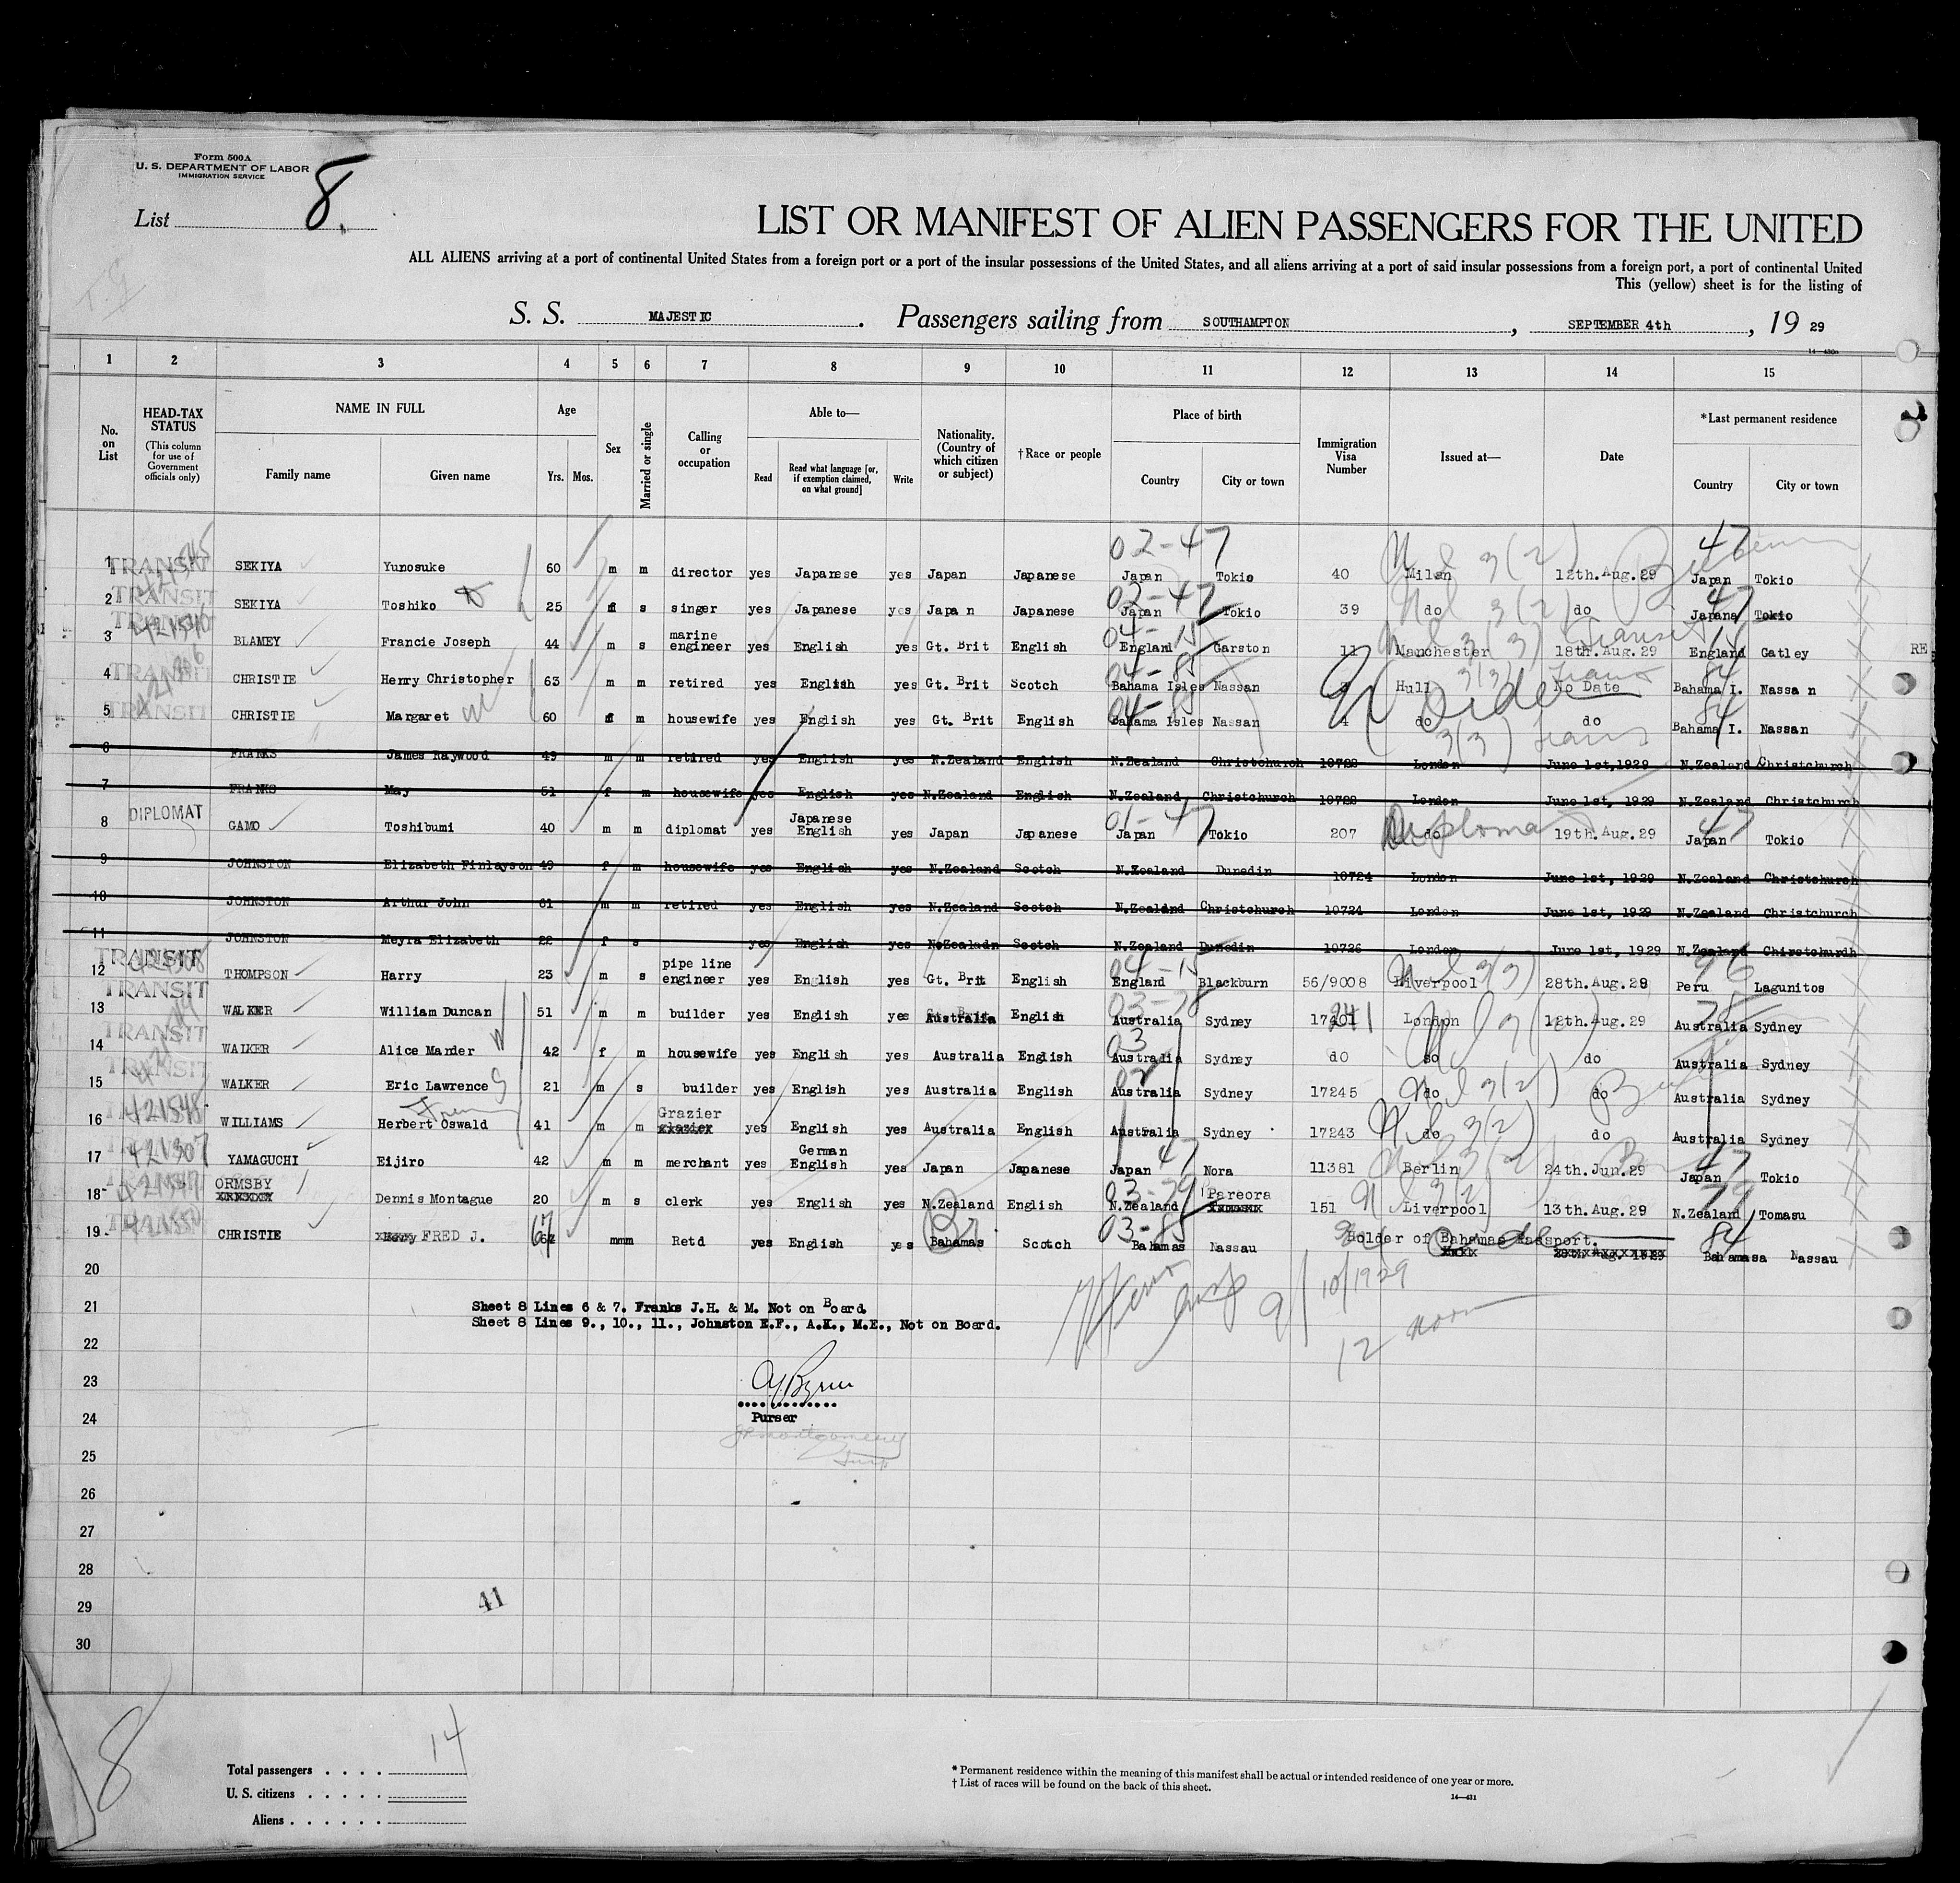 Form 500A
U. S. DEPARTMENT OF LABOR
IMMIGRATION SERVICE
List 8.
LIST OR MANIFEST OF ALIEN PASSENGERS FOR THE UNITED
ALL ALIENS arriving at a port of continental United States from a foreign port or a port of the insular possessions of the United States, and all aliens arriving at a port of said insular possessions from a foreign port, a port of continental United
This (yellow) sheet is for the listing of
S. S. MAJESTIC. Passengers sailing from SOUTHAMPTON, SEPTEMBER 4th, 19 29
14—430a
1 2 3 4 5 6 7 8 9 10 11 12 13 14 15
No. on List
HEAD-TAX STATUS (This column for use of Government officials only)
NAME IN FULL Family name Given name
Age Yrs. Mos.
Sex
Married or single
Calling or occupation
Able to— Read Read what language [or, if exemption claimed, on what ground] Write
Nationality. (Country of which citizen or subject)
†Race or people
Place of birth Country City or town
Immigration Visa Number
Issued at—
Date
*Last permanent residence Country City or town
02-47 47
1 TRANSIT SEKIYA Yunosuke 60 m m director yes Japanese yes Japan Japanese Japan Tokio 40 Milan 12th.Aug.29 Japan Tokio
2 TRANSIT SEKIYA Toshiko 25 f s singer yes Japanese yes Japa n Japanese Japan Tokio 39 do do Japana Tokio
3 TRANSIT BLAMEY Francie Joseph 44 m s marine engineer yes English yes Gt. Brit English England Garston 11 Manchester 18th.Aug.29 England Gatley
RE
4 TRANSIT CHRISTIE Henry Christopher 63 m m retired yes English yes Gt. Brit Scotch Bahama Isles Nassan Hull No Date Bahama I. Nassa n
5 TRANSIT CHRISTIE Margaret 60 f m housewife yes English yes Gt. Brit English Bahama Isles Nassan 4 do do Bahama I. Nassan
6 FRANKS James Raywood 49 m m retired yes English yes N.Zealand English N.Zealand Christchurch 10723 London June 1st,1929 N.Zealand Christchurch
7 FRANKS May 51 f m housewife yes English yes N.Zealand English N.Zealand Christchurch 10723 London June 1st, 1929 N.Zealand Christchurch
8 DIPLOMAT GAMO Toshibumi 40 m m diplomat yes Japanese English yes Japan Japanese Japan Tokio 207 do Diplomat 19th.Aug.29 Japan Tokio
9 JOHNSTON Elizabeth Finlayson 49 f m housewife yes English yes N.Zealand Scotch N.Zealand Dunedin 10724 London June 1st, 1929 N.Zealand Christchurch
10 JOHNSTON Arthur John 61 m m retired yes English yes N.Zealand Scotch N.Zealand Christchurch 10724 London June 1st, 1929 N.Zealand Christchurch
11 JOHNSTON Meyra Elizabeth 22 f s yes English yes NoZealadn Scotch N.Zealand Dunedin 10726 London June 1st, 1929 N.Zealand Chirstchurdh
12 TRANSIT THOMPSON Harry 23 m s pipe line engineer yes English yes Gt. Brit English England Blackburn 56/9008 Liverpool 28th.Aug.29 Peru Lagunitos
13 TRANSIT WALKER William Duncan 51 m m builder yes English yes Australia English Australia Sydney 17241 London 12th.Aug.29 Australia Sydney
14 TRANSIT WALKER Alice Mander 42 f m housewife yes English yes Australia English Australia Sydney do do do Australia Sydney
15 TRANSIT WALKER Eric Lawrence 21 m s builder yes English yes Australia English Australia Sydney 17245 do do Australia Sydney
16 421548 WILLIAMS Herbert Oswald 41 m m Grazier yes English yes Australia English Australia Sydney 17243 do do Australia Sydney
17 421307 YAMAGUCHI Eijiro 42 m m merchant yes German English yes Japan Japanese Japan Nora 11381 Berlin 24th.Jun.29 Japan Tokio
18 ORMSBY Dennis Montague 20 m s clerk yes English yes N.Zealand English N.Zealand Pareora 151 Liverpool 13th.Aug.29 N.Zealand Tomasu
19 CHRISTIE FRED J. 67 mmm Retd yes English yes Bahamas Scotch Bahamas Nassau Holder of Bahamas Passport. Bahamasa Nassau
20
21 Sheet 8 Lines 6 & 7. Franks J.H. & M. Not on Board.
Sheet 8 Lines 9., 10., 11., Johnston E.F., A.K., M.E., Not on Board.
9/10/1929
12 noon
22
23
24 Purser
25
26
27
28
29 41
30
8
Total passengers . . . . 14
U. S. citizens . . . . .
Aliens . . . . . .
* Permanent residence within the meaning of this manifest shall be actual or intended residence of one year or more.
† List of races will be found on the back of this sheet.
14—431